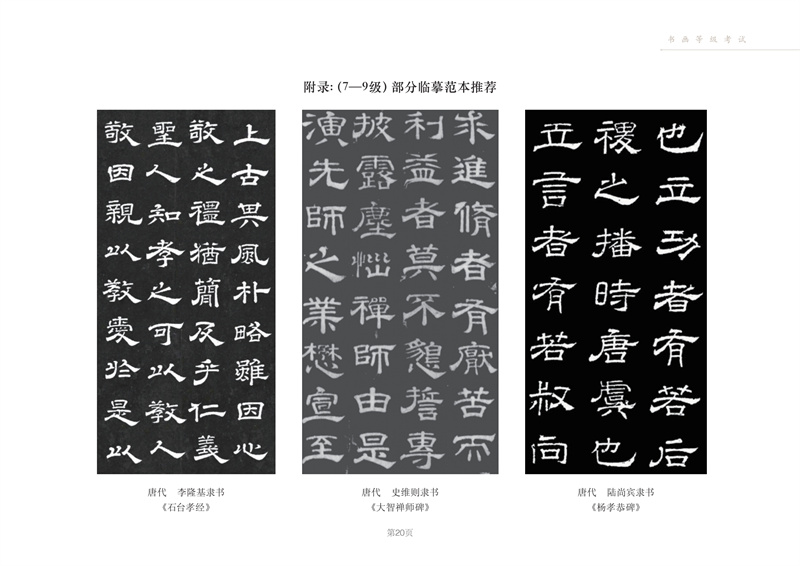 书画等级考试
附录:(7—9级)部分临摹范本推荐
上古其風朴略雖因心
敬之禮猶簡及乎仁義
聖人知孝之可以教人
敬因親以教愛於是以
求進脩者有厭苦而
利益者莫不懇誓專
披露塵惱禪師由是
演先師之業懋宣至
也立功者有若后
稷之播時唐虞也
立言者有若叔向
唐代 李隆基隶书
《石台孝经》
唐代 史维则隶书
《大智禅师碑》
唐代 陆尚宾隶书
《杨孝恭碑》
第20页